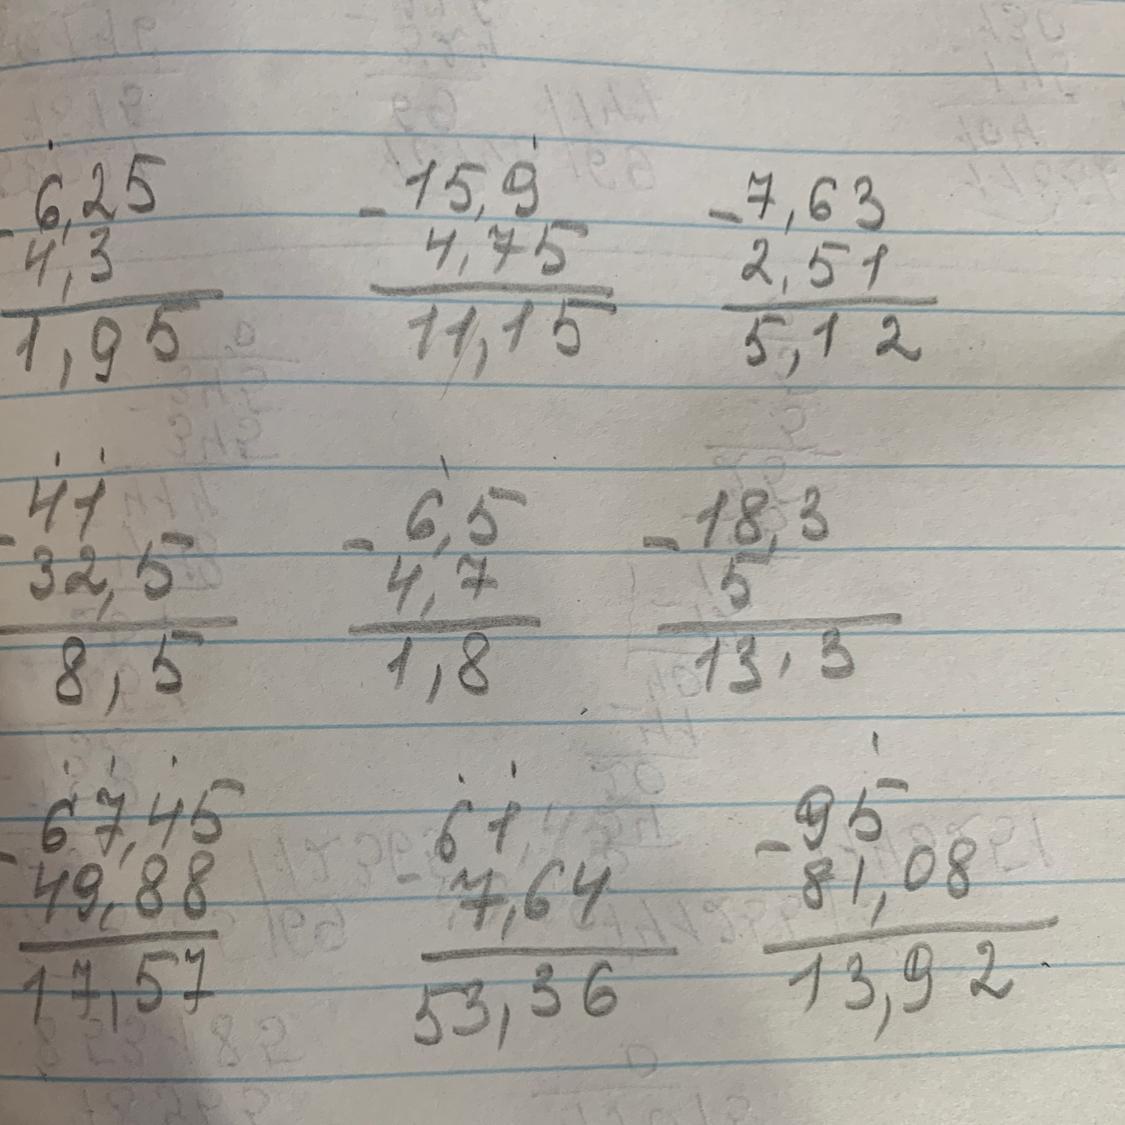 6,25 15,9 -7,63
-4,3 -4,75 2,51
1,95 11,15 5,12
41 6,5 18,3
-32,5 -4,7 -5
8,5 1,8 13,3
67,45 61 95
-49,88 7,64 -81,08
17,57 53,36 13,92